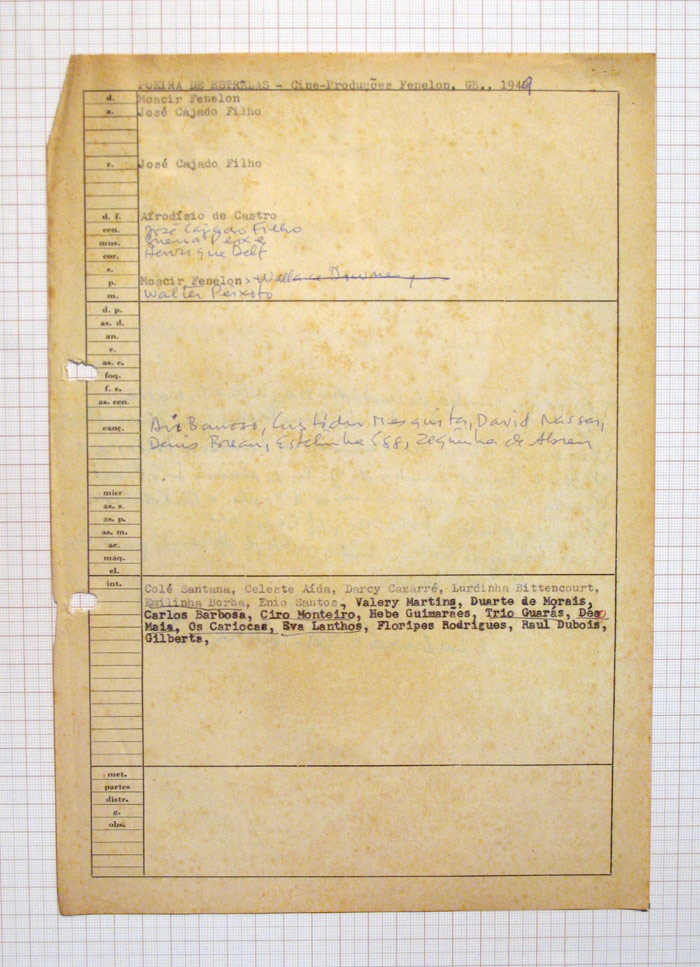 POEIRA DE ESTRELAS - Cine-Produções Fenelon, GB., 1949
d. Moacir Fenelon
a. José Cajado Filho
r. José Cajado Filho
d. f. Afrodísio de Castro
cen. José Cajado Filho
mus. Guerra Peixe
cor. Henrique Delf
s.
p. Moacir Fenelon x Wallace Downey
m. Walter Peixoto
d. p.
as. d.
an.
c.
as. c.
foq.
f. c.
as. cen.
canç. Ari Barroso, Custódio Mesquita, David Nasser,
Denis Brean, Estelinha Egg, Zequinha de Abreu
micr
as. s.
as. p.
as. m.
ac.
maq.
el.
int. Colé Santana, Celeste Aída, Darcy Cazarré, Lurdinha Bittencourt,
Emilinha Borba, Enio Santos, Valery Martins, Duarte de Morais,
Carlos Barbosa, Ciro Monteiro, Hebe Guimarães, Trio Guarás, Déo
Maia, Os Cariocas, Eva Lanthos, Floripes Rodrigues, Raul Dubois,
Gilberta,
met.
partes
distr.
g.
obs.